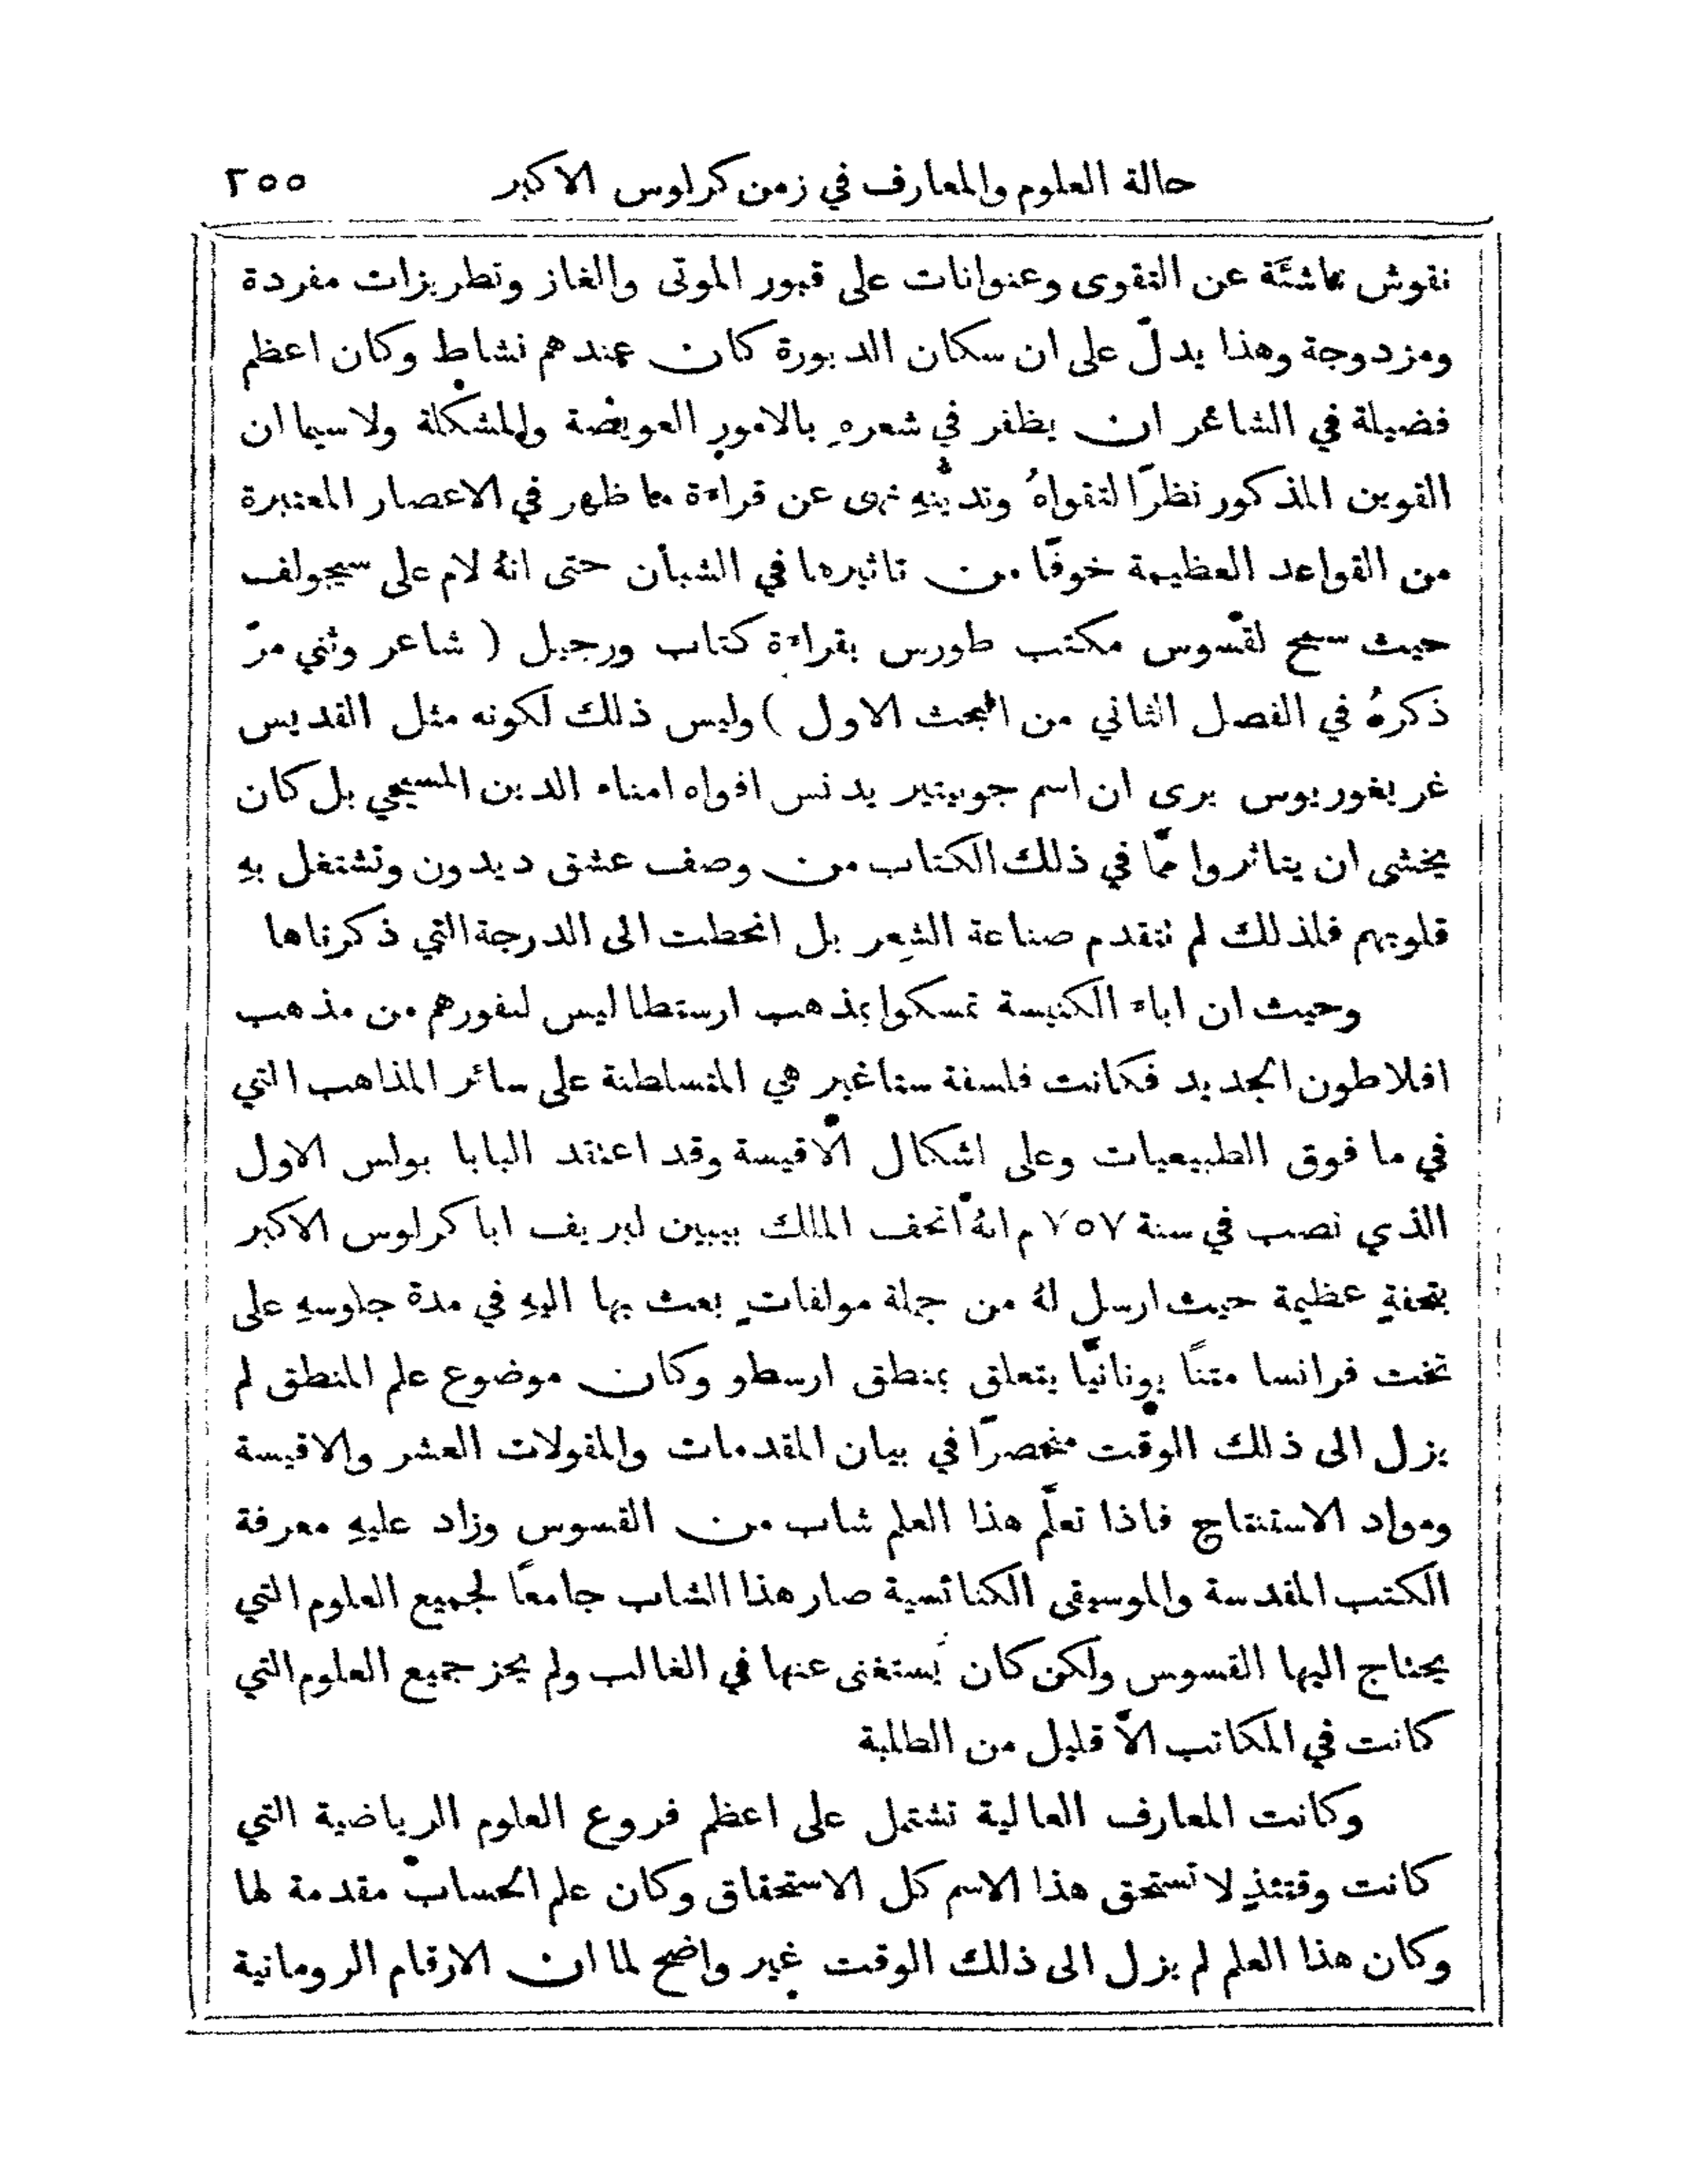 حالة العلوم والمعارف في زمن كرلوس الاكبر ٢٥٥
نقوش ناشئة عن التقوى وعنوانات على قبور الموتى والغاز وتطريزات مفردة
ومزدوجة وهذا يدلّ على ان سكان الديورة كان عندهم نشاط وكان اعظم
فضيلة في الشاعر ان يظفر في شعرهِ بالامور العويصة والمشكلة ولاسيما ان
القوين المذكور نظرًا لتقواهُ وتدينهِ نهى عن قراءة ما ظهر في الاعصار المعتبرة
من القواعد العظيمة خوفًا من تاثيرها في الشبان حتى انهُ لام على سيجولف
حيث سمح لقسوس مكتب طورس بقراءة كتاب ورجيل ( شاعر وثني مرّ
ذكرهُ في الفصل الثاني من المبحث الاول ) وليس ذلك لكونه مثل القديس
غريغوريوس يرى ان اسم جوبيتير يدنس افواه امناء الدين المسيحي بل كان
يخشى ان يتاثروا ممّا في ذلك الكتاب من وصف عشق ديدون وتشتغل بهِ
قلوبهم فلذلك لم تتقدم صناعة الشعر بل انحطت الى الدرجة التي ذكرناها
وحيث ان اباء الكنيسة تمسكوا بمذهب ارستطاليس لنفورهم من مذهب
افلاطون الجديد فكانت فلسفة ستاغير هي المتسلطنة على سائر المذاهب التي
في ما فوق الطبيعيات وعلى اشكال الاقيسة وقد اعتقد البابا بولس الاول
الذي نصب في سنة ٧٥٧ م انهُ اتحف الملك بيبين لبريف ابا كرلوس الاكبر
بتحفةٍ عظيمة حيث ارسل لهُ من جملة مولفاتٍ بعث بها اليهِ في مدة جلوسهِ على
تخت فرانسا متنًا يونانيًّا يتعلق بمنطق ارسطو وكان موضوع علم المنطق لم
يزل الى ذلك الوقت منحصرًا في بيان المقدمات والمقولات العشر والاقيسة
ومواد الاستنتاج فاذا تعلَّم هذا العلم شاب من القسوس وزاد عليهِ معرفة
الكتب المقدسة والموسيقى الكنائسية صار هذا الشاب جامعًا لجميع العلوم التي
يحتاج اليها القسوس ولكن كان يُستغنى عنها في الغالب ولم يحز جميع العلوم التي
كانت في المكاتب الاَّ قليل من الطلبة
وكانت المعارف العالية تشتمل على اعظم فروع العلوم الرياضية التي
كانت وقتئذٍ لا تستحق هذا الاسم كل الاستحقاق وكان علم الحساب مقدمة لها
وكان هذا العلم لم يزل الى ذلك الوقت غير واضح لما ان الارقام الرومانية